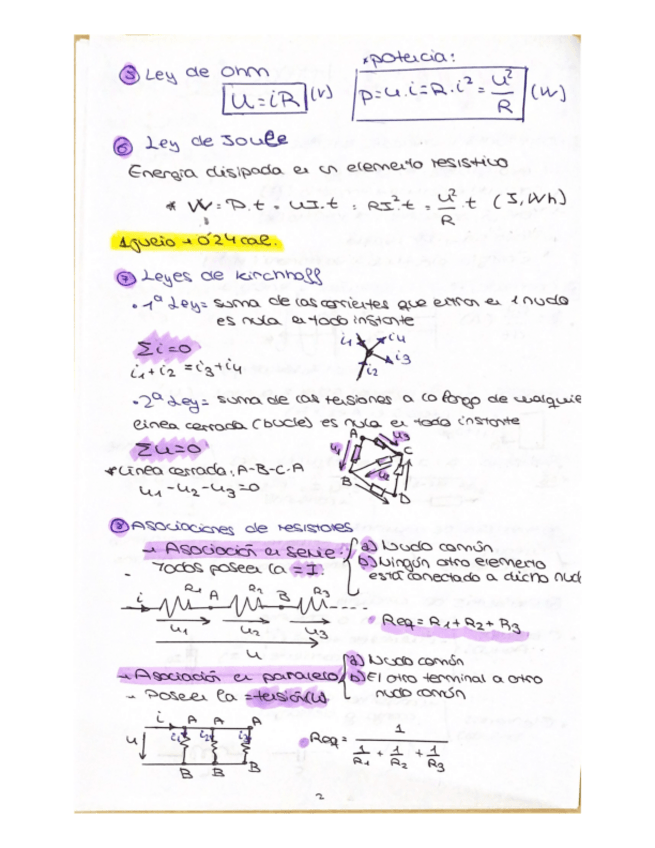 ⑤ Ley de Ohm
U = iR (V)
*potencia:
P = u.i = R.i² = u²/R (W)
⑥ Ley de Joule
Energía disipada en un elemento resistivo
* W = P.t = UI.t = RI²t = u²/R .t (J, Wh)
1 julio → 0'24 cal.
⑦ Leyes de Kirchhoff
• 1ª Ley = suma de las corrientes que entran en 1 nudo
es nula en todo instante
Σi=0
i1+i2 = i3+i4
i1 i4
i3
i2
• 2ª Ley = suma de las tensiones a lo largo de cualquie
línea cerrada (bucle) es nula en todo instante
Σu=0
* Línea cerrada: A-B-C-A
u1-u2-u3=0
A u3
u1 C
u2
B D
⑧ Asociaciones de resistores
→ Asociación en serie:
Todos poseen la = I.
a) Nudo común
b) Ningún otro elemento
está conectado a dicho nud
i R1 A R2 B R3
u1 u2 u3
u
• Req = R1+R2+R3
→ Asociación en paralelo
→ Poseen la = tensión(u)
a) Nudo común
b) El otro terminal a otro
nudo común
i A A A
u i1 i2 i3
B B B
• Req = 1 / (1/R1 + 1/R2 + 1/R3)
2